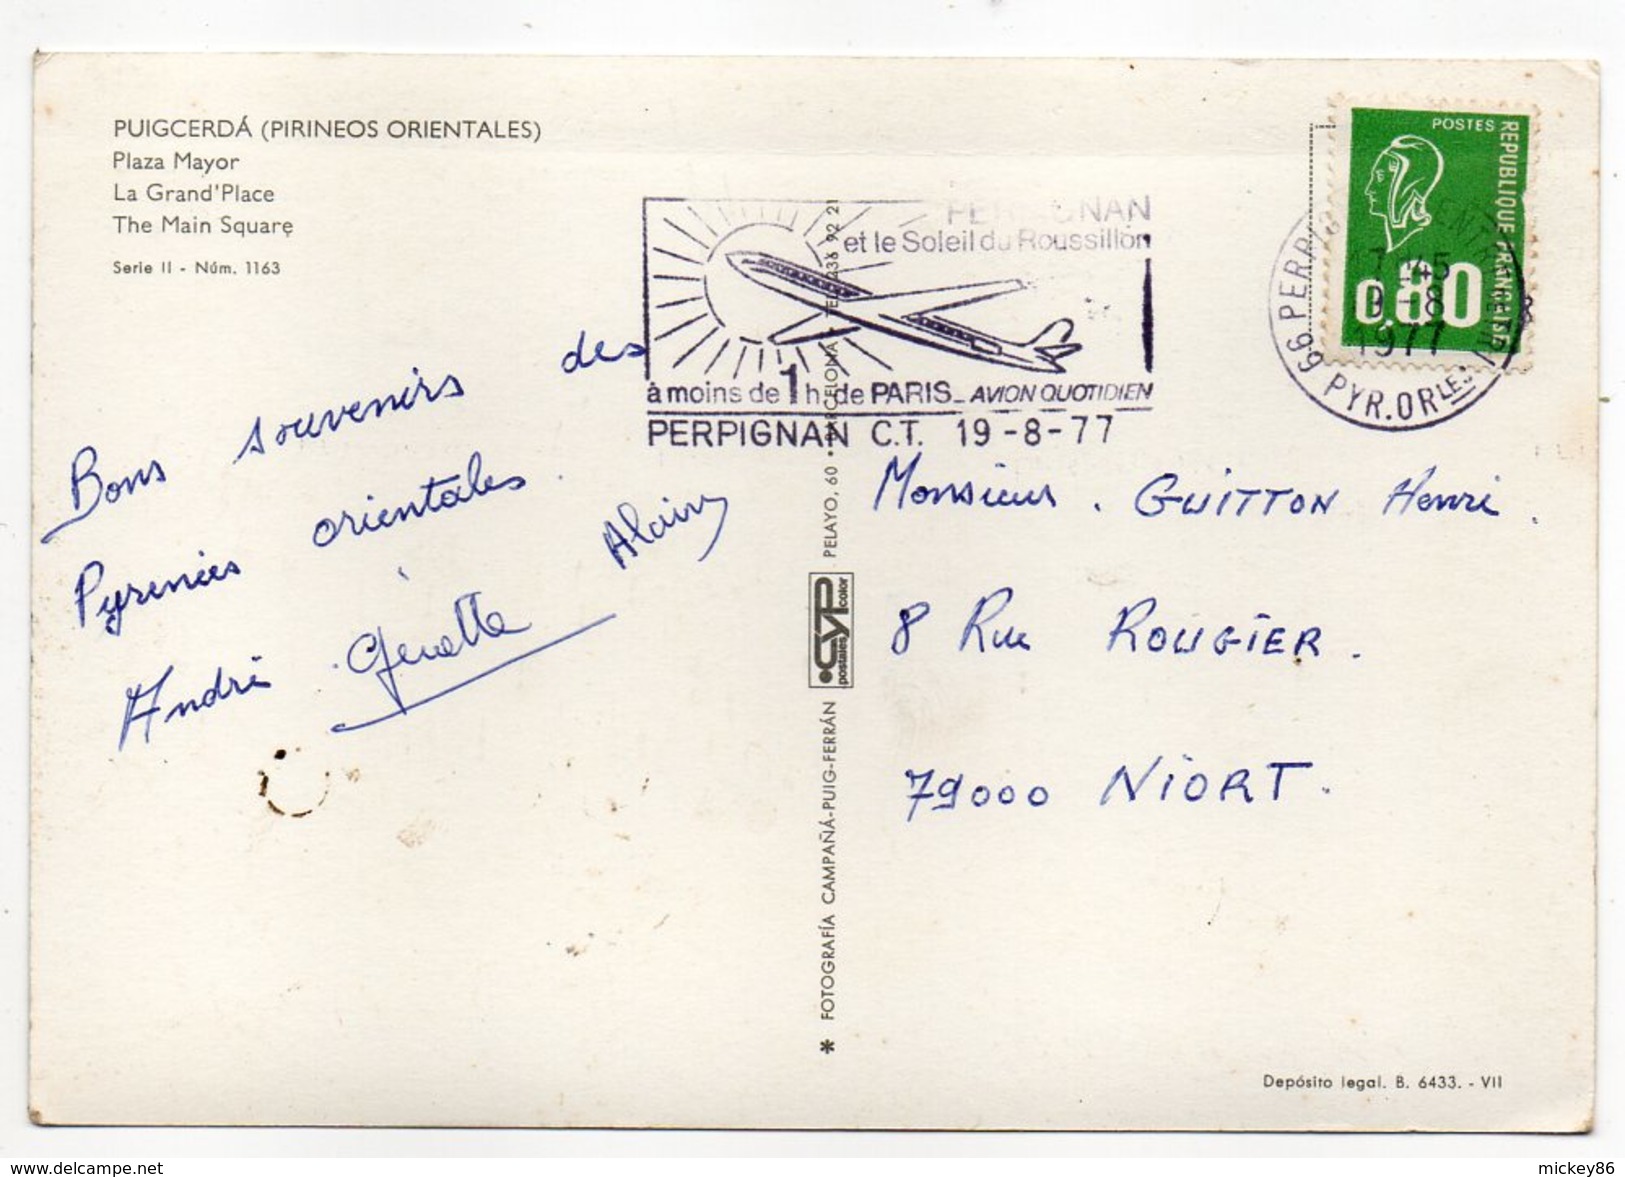 PUIGCERDÁ (PIRINEOS ORIENTALES)
Plaza Mayor
La Grand'Place
The Main Square
Serie II - Núm. 1163
Bons souvenirs des
Pyrenées orientales.
André Ginette Alain
PERPIGNAN
et le Soleil du Roussillon
à moins de 1h. de PARIS_ AVION QUOTIDIEN
PERPIGNAN C.T. 19-8-77
POSTES
REPUBLIQUE FRANÇAISE
0,80
1977
66 PYR.ORLES
Monsieur. GUITTON Henri.
8 Rue ROUGIER.
79000 NIORT.
* FOTOGRAFÍA CAMPAÑÁ-PUIG-FERRÁN
CYP
postales color
PELAYO, 60 • BARCELONA
Depósito legal. B. 6433. - VII
www.delcampe.net
mickey86